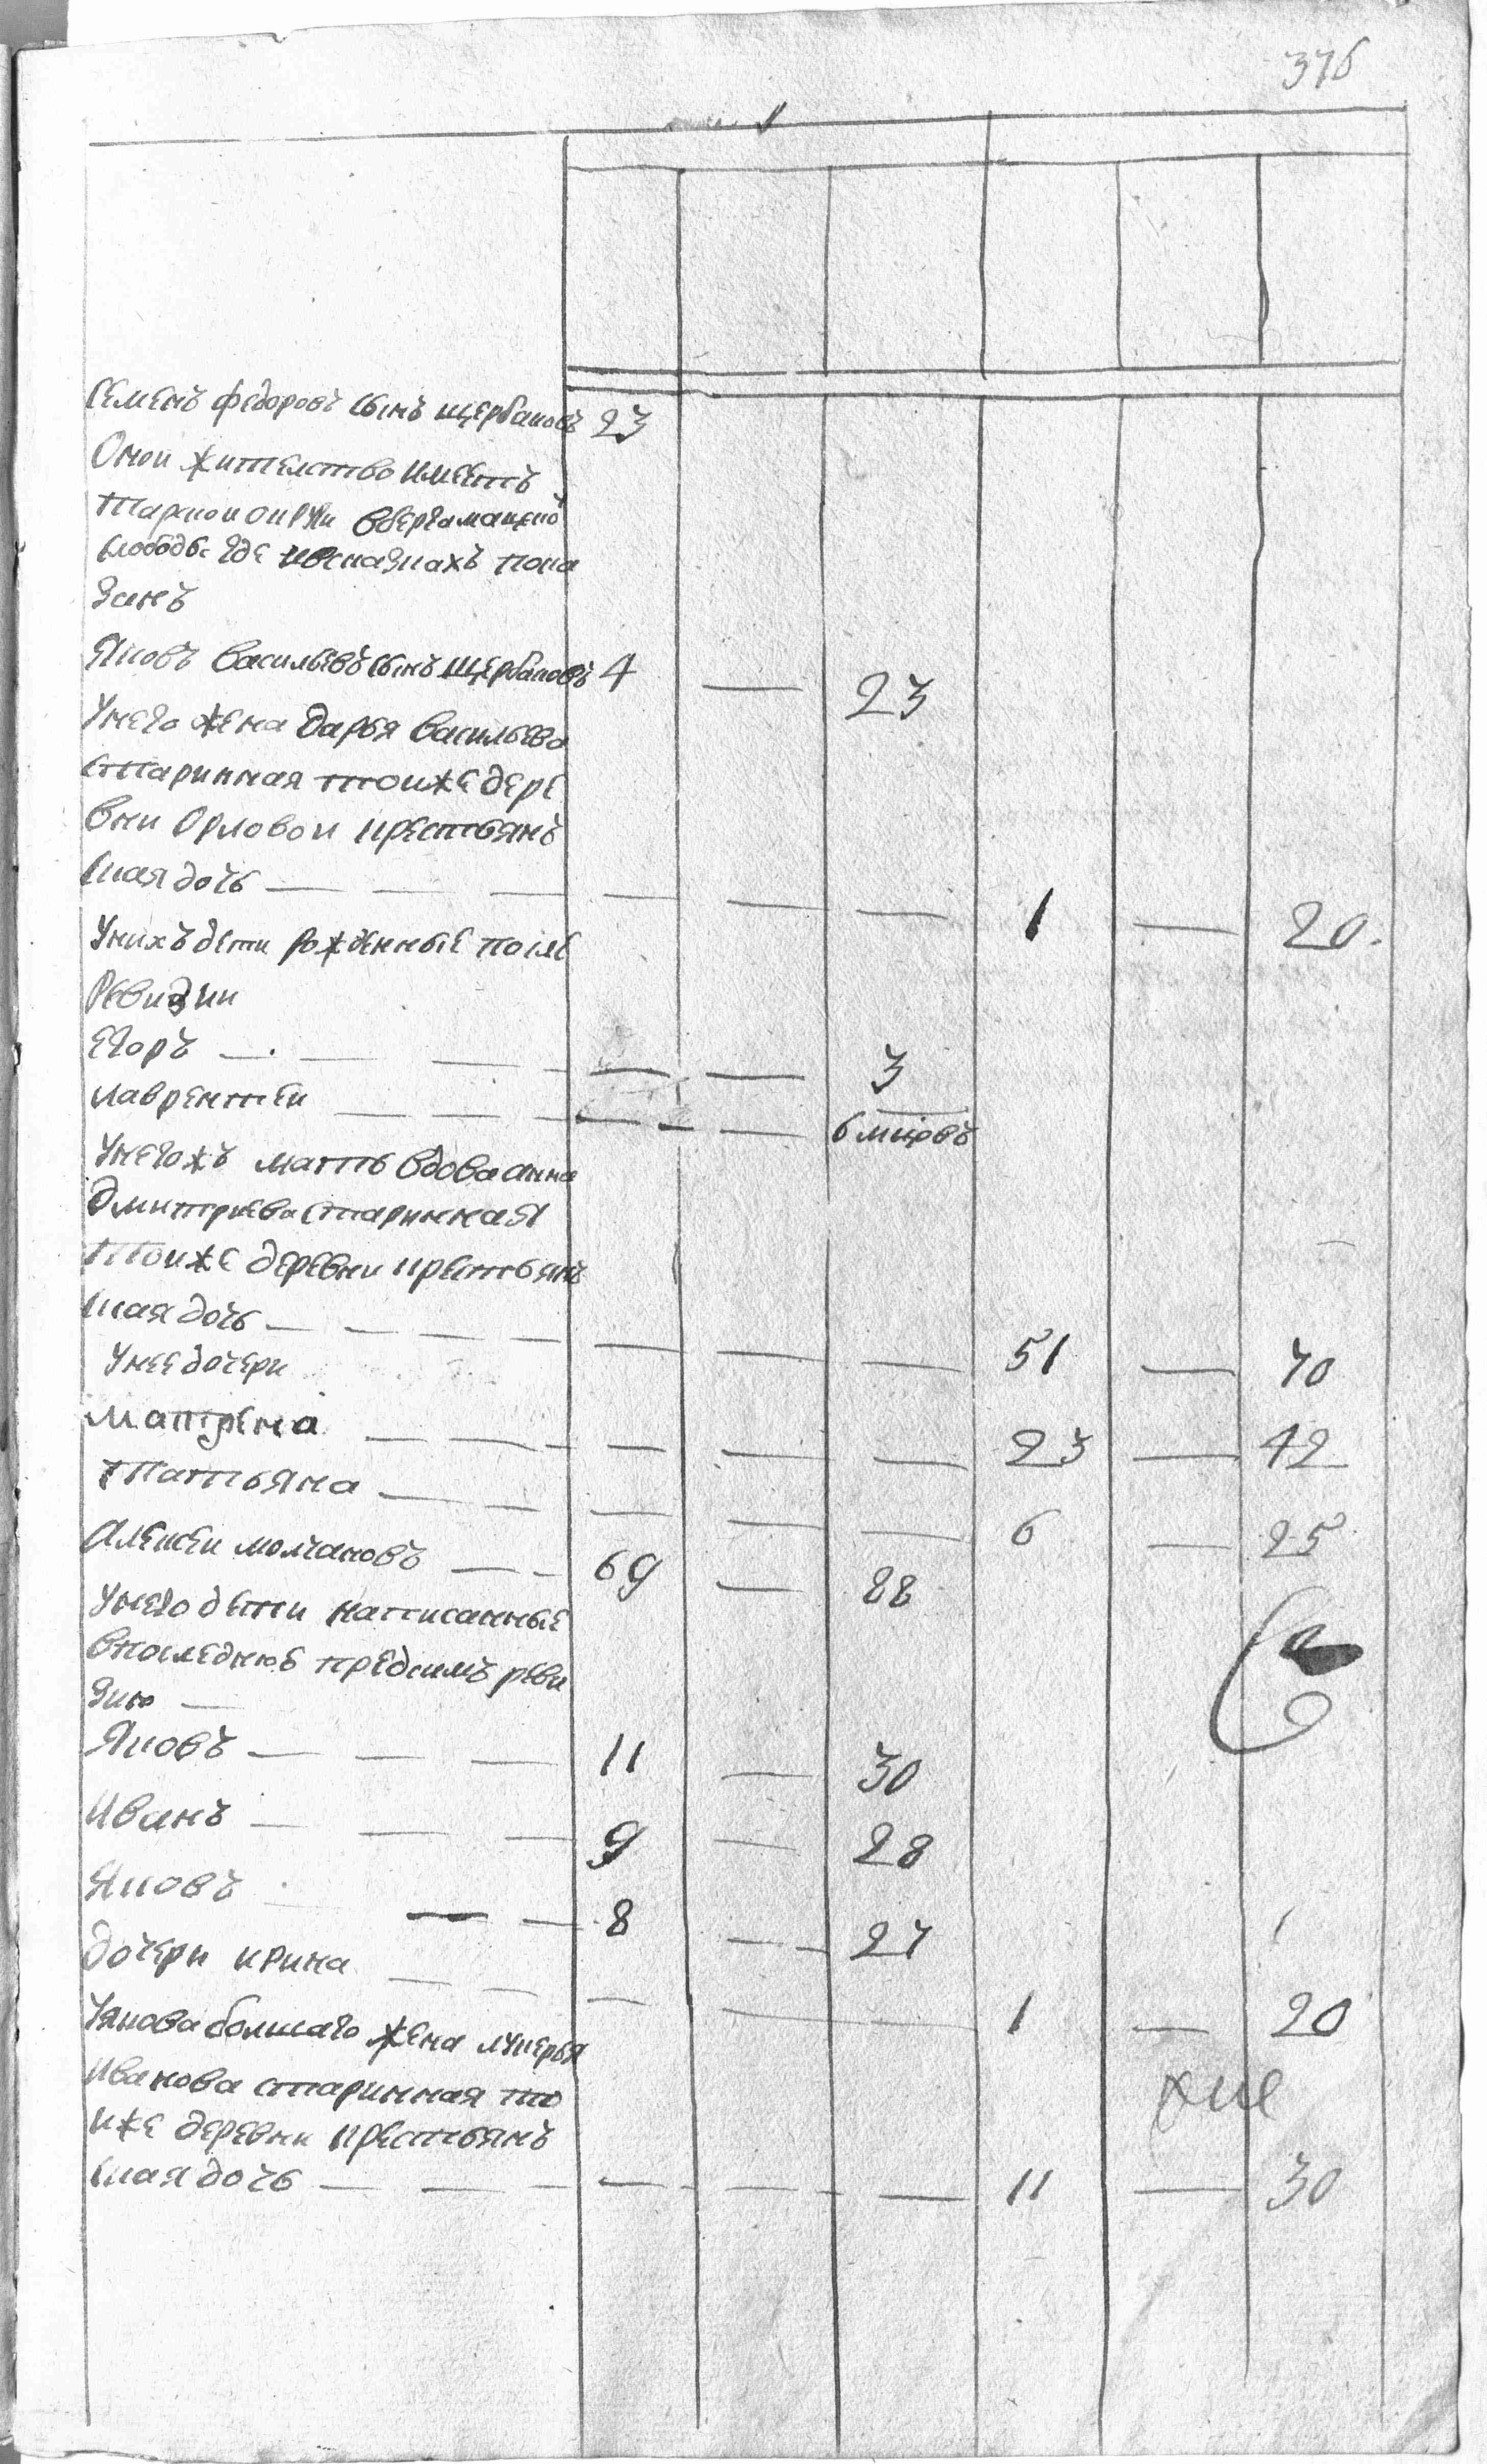 376
Семенъ федоровъ сынъ щербаковъ 23
Оной жителство имеетъ
Тарской округи вбергамацкой
слободе где и всказкахъ пока
занъ
Яковъ васильевъ сынъ щербаковъ 4 — 23
Унего жена дарья васильева
старинная тойже дере
вни Орловой крестьянъ
ская дочь — 1 — 20.
Унихъ дети рожденные после
Ревизии
Егоръ — 3
лаврентей — 6 мцовъ
Унегожъ мать вдова анна
дмитриева старинная
Тойже деревни крестьянъ
ская дочь — 51 — 70
Унее дочери
Матрена — 23 — 42
Татьяна — 6 — 25
Алексей молчановъ — 69 — 88
Унего дети написанные
впоследнюю предсимъ реви
зию —
Яковъ — 11 — 30
Иванъ — 9 — 28
Яковъ — 8 — 27
дочери ирина — 1 — 20
Уякова болшаго жена лукерья
Иванова старинная то
йже деревни крестьянъ
ская дочь — 11 — 30